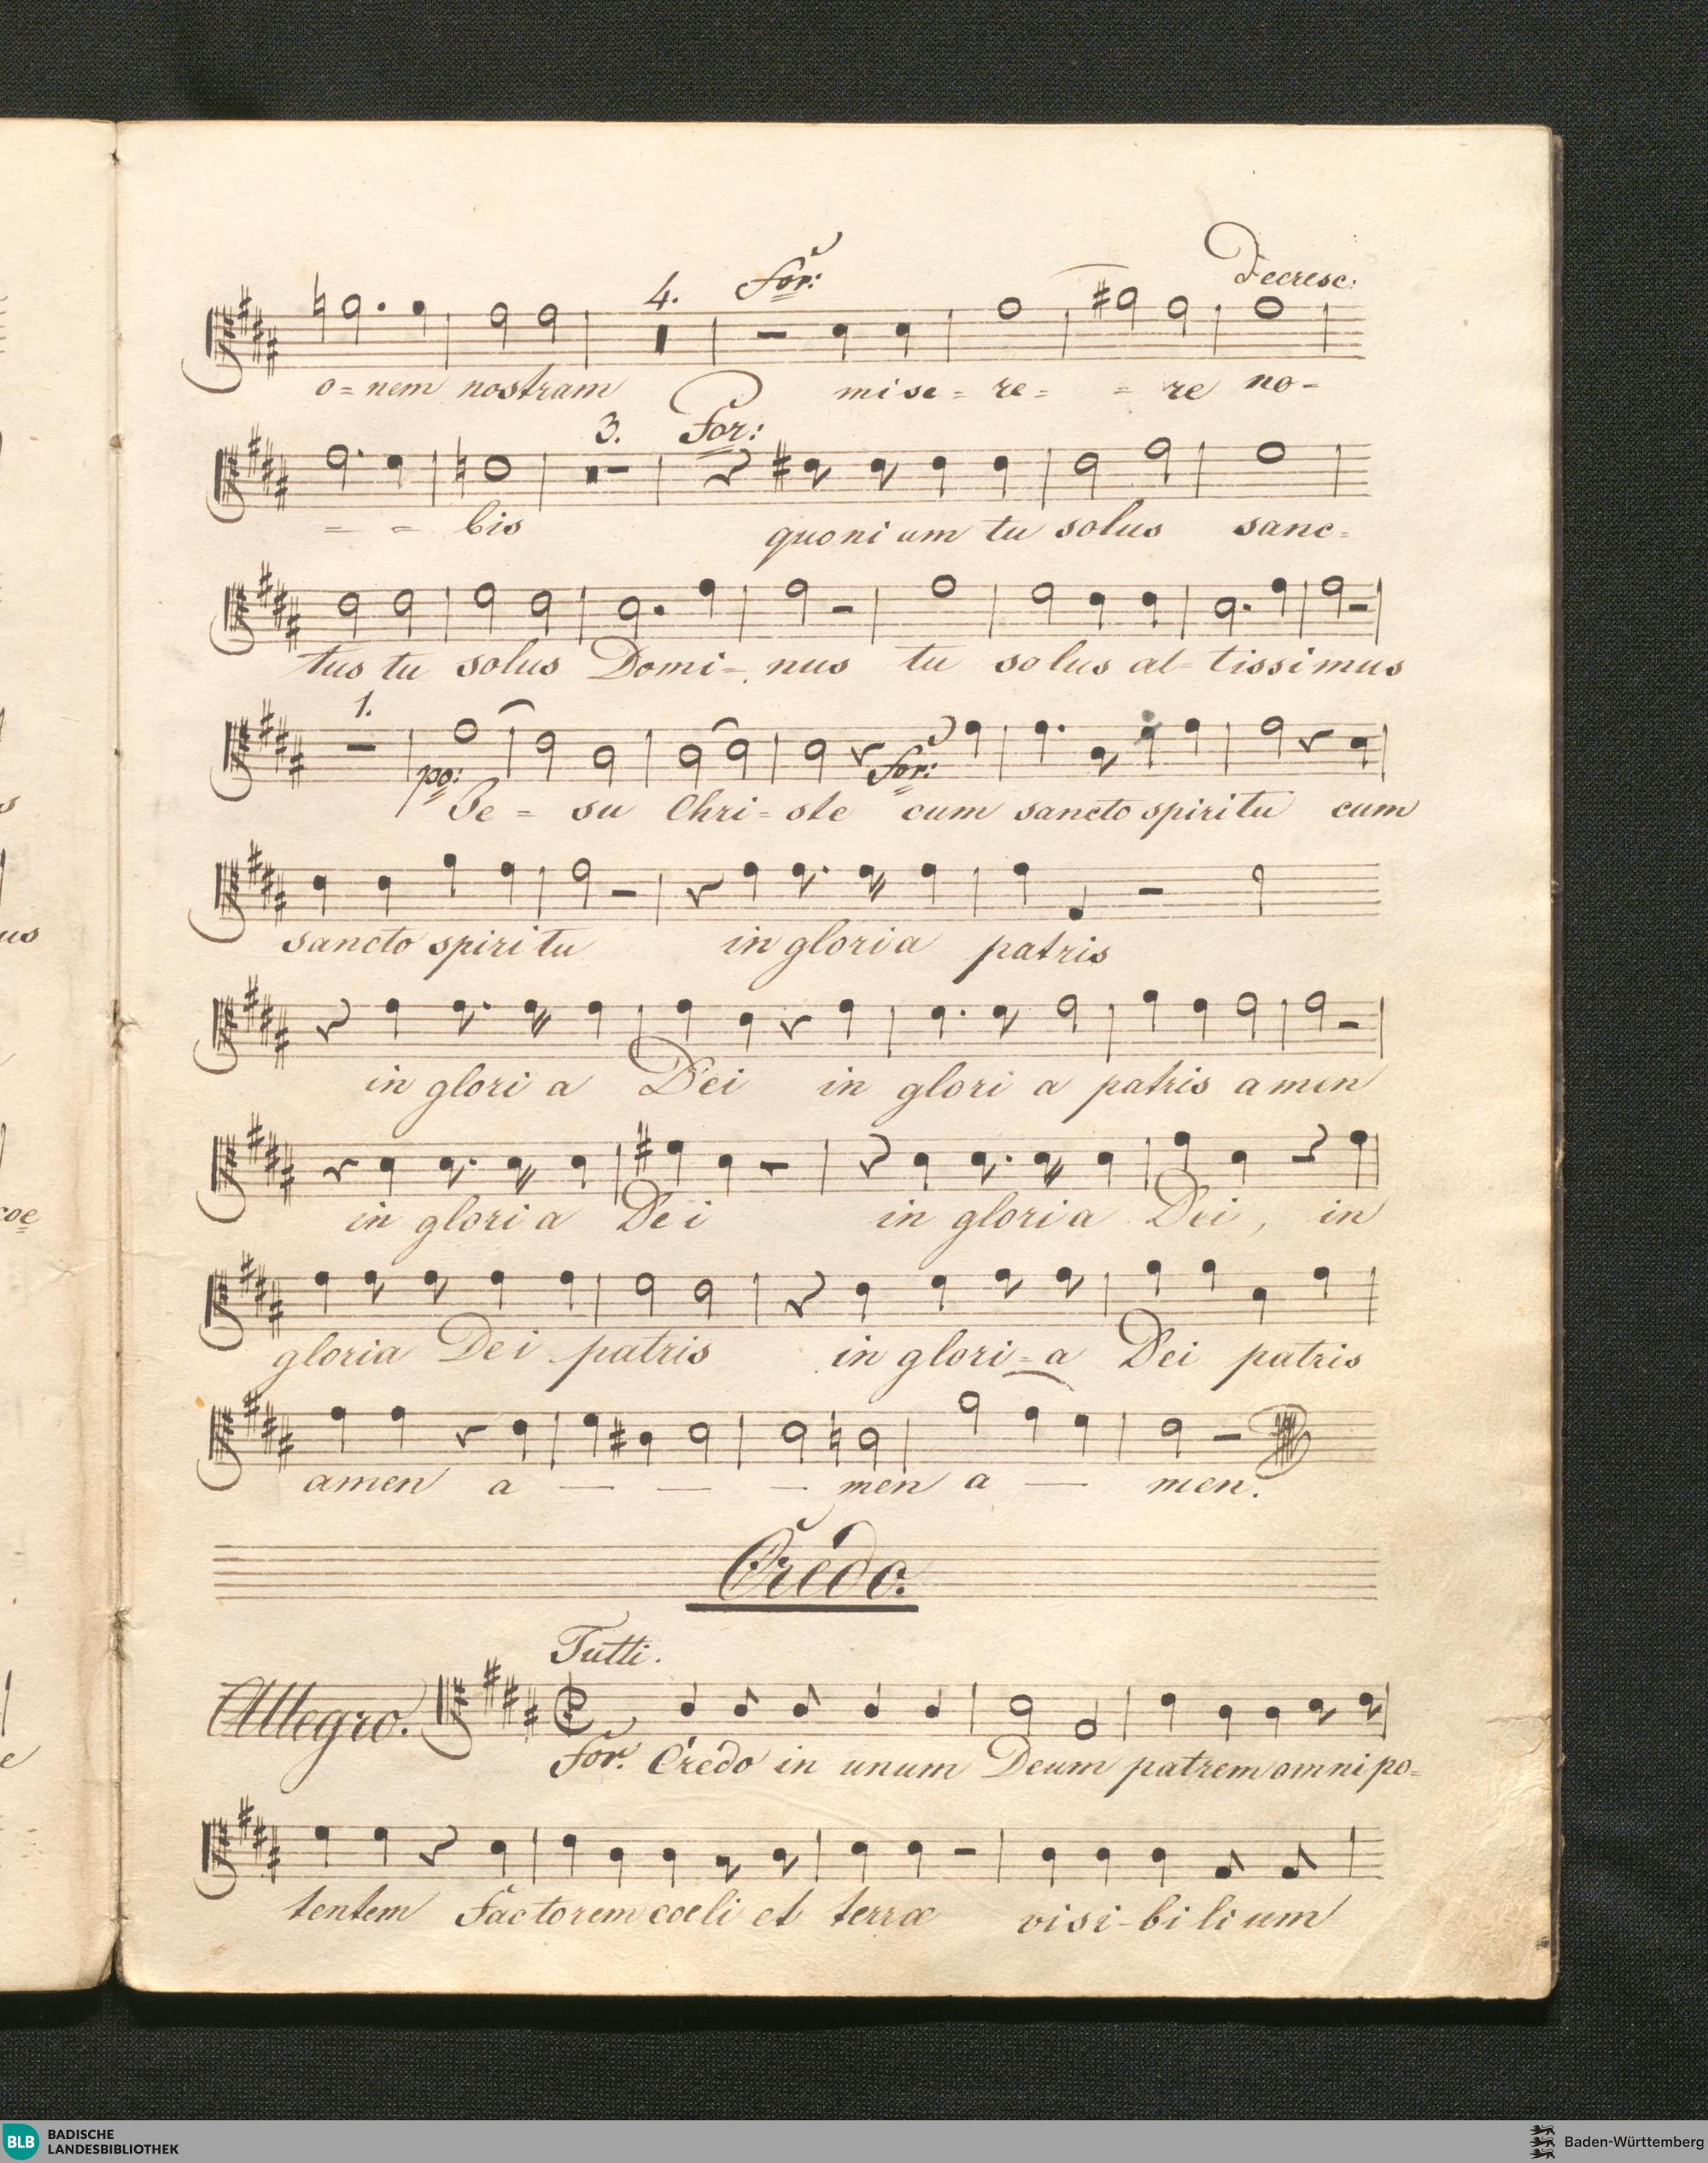 4. for: Decresc:
o = nem nostram mi se = re = = re no -
3. For:
= = bis quoni am tu solus sanc =
tus tu solus Domi = nus tu solus al = tissimus
1.
po: for:
Je = su Chri = ste cum sancto spiritu cum
sancto spiritu in gloria patris
in glori a Dei in glori a patris amen
in glori a Dei in gloria Dei, in
gloria Dei patris in glori = a Dei patris
amen a — — — men a — men.
Credo.
Tutti.
Allegro.
For. Credo in unum Deum patrem omnipo =
tentem Factorem coeli et terrae visi - bi li um
s
us
coe
e
BLB BADISCHE
LANDESBIBLIOTHEK
Baden-Württemberg